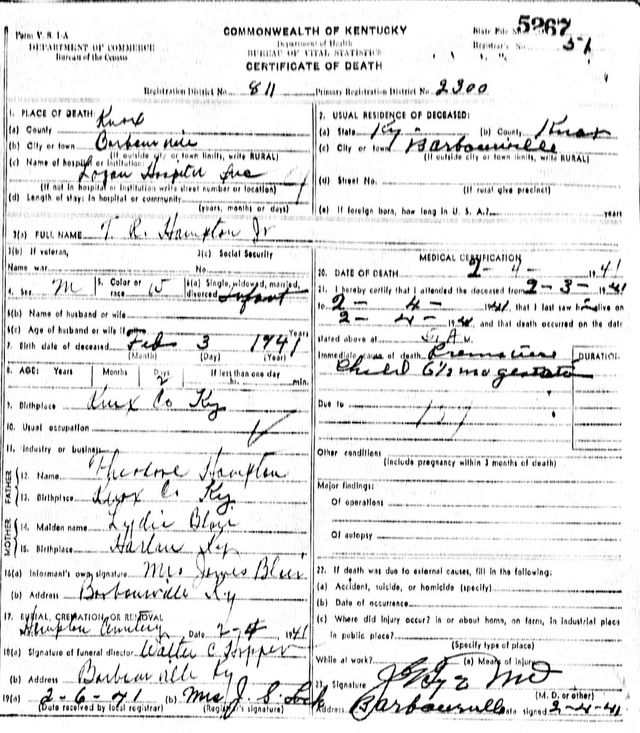 Form V. S. 1-A
DEPARTMENT OF COMMERCE
Bureau of the Census
COMMONWEALTH OF KENTUCKY
Department of Health
BUREAU OF VITAL STATISTICS
CERTIFICATE OF DEATH
State File No. 5267
Registrar's No. 51
Registration District No. 811 Primary Registration District No. 2300
1. PLACE OF DEATH:
(a) County Knox
(b) City or town Barbourville
(If outside city or town limits, write RURAL)
(c) Name of hospital or institution:
Logan Hospital Inc
(If not in hospital or institution write street number or location)
(d) Length of stay: In hospital or community
(years, months or days)
2. USUAL RESIDENCE OF DECEASED:
(a) State Ky- (b) County Knox
(c) City or town Barbourville
(If outside city or town limits, write RURAL)
(d) Street No.
(If rural give precinct)
(e) If foreign born, how long in U. S. A.? years
3(a) FULL NAME T. R. Hampton Jr
3(b) If veteran, 3(c) Social Security
Name war No.
4. Sex M 5. Color or race W 6(a) Single, widowed, married, divorced Infant
6(b) Name of husband or wife
6(c) Age of husband or wife if Years
7. Birth date of deceased Feb 3 1941
(Month) (Day) (Year)
8. AGE: Years Months Days If less than one day
2 hr. min.
9. Birthplace Knox Co Ky
10. Usual occupation
11. Industry or business
FATHER
12. Name Theodore Hampton
13. Birthplace Knox Co Ky
MOTHER
14. Maiden name Lydia Blair
15. Birthplace Harlan Ky
16(a) Informant's own signature Mrs James Blair
(b) Address Barbourville Ky
17. BURIAL, CREMATION OR REMOVAL
Hampton Cemetery Date 2-4 1941
18(a) Signature of funeral director Walter C Hopper
(b) Address Barbourville Ky
19(a) 2-6-41 (b) Mrs J. S. Lock
(Date received by local registrar) (Registrar's signature)
MEDICAL CERTIFICATION
20. DATE OF DEATH 2-4- 1941
21. I hereby certify that I attended the deceased from 2-3- 1941
to 2-4- 1941, that I last saw h alive on
2-4- 1941, and that death occurred on the date
stated above at
Immediate cause of death Premature
Child 6½ mo gestation
DURATION
Due to
159
Other conditions
(Include pregnancy within 3 months of death)
Major findings:
Of operations
Of autopsy
22. If death was due to external causes, fill in the following:
(a) Accident, suicide, or homicide (specify)
(b) Date of occurrence
(c) Where did injury occur? In or about home, on farm, in industrial place
in public place?
(Specify type of place)
While at work? (e) Means of injury
23. Signature MD
(M. D. or other)
Address Barbourville Date signed 2-4-41